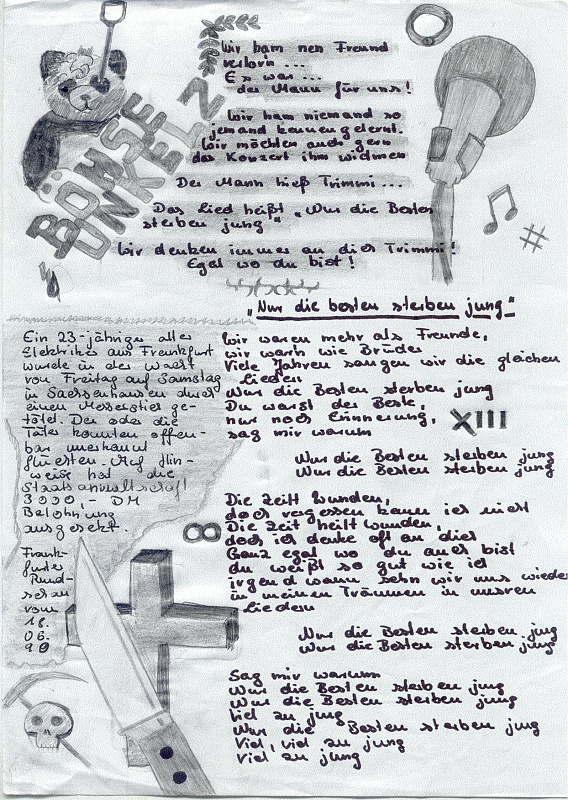 BÖHSE
ONKELZ
Wir ham nen Freund
verlorn ...
Es war ...
der Mann für uns!
Wir ham niemand so
jemand kennengelernt.
Wir möchten auch gern
das Konzert ihm widmen
Der Mann hieß Trimmi ...
Das Lied heißt „Nur die Besten
sterben jung"
Wir denken immer an dich Trimmi!
Egal wo du bist!
#
„Nur die besten sterben jung"
Ein 23-jähriger alter
Elektriker aus Frankfurt
wurde in der Nacht
von Freitag auf Samstag
in Sachsenhausen durch
einen Messerstich ge-
tötet. Der oder die
Täter konnten offen-
bar unerkannt
flüchten. Auf Hin-
weise hat die
Staatsanwaltschaft
3000,- DM
Belohnung
ausgesetzt.
Frank-
furter
Rund-
schau
vom
18.
06.
90
Wir waren mehr als Freunde,
wir warn wie Brüder
Viele Jahren sangen wir die gleichen
Lieder
Nur die Besten sterben jung
Du warst der Beste,
nur noch Erinnerung,
sag mir warum
XIII
Nur die Besten sterben jung
Nur die Besten sterben jung
Die Zeit Wunden,
doch vergessen kann ich nicht
Die Zeit heilt Wunden,
doch ich denke oft an dich
Ganz egal wo du auch bist
du weißt so gut wie ich
irgend wann sehn wir uns wieder
in meinen Träumen in unsren
Liedern
Nur die Besten sterben jung
Nur die Besten sterben jung
Sag mir warum
Nur die Besten sterben jung
Nur die Besten sterben jung
Viel zu jung
Nur die Besten sterben jung
Viel, viel zu jung
Viel zu jung